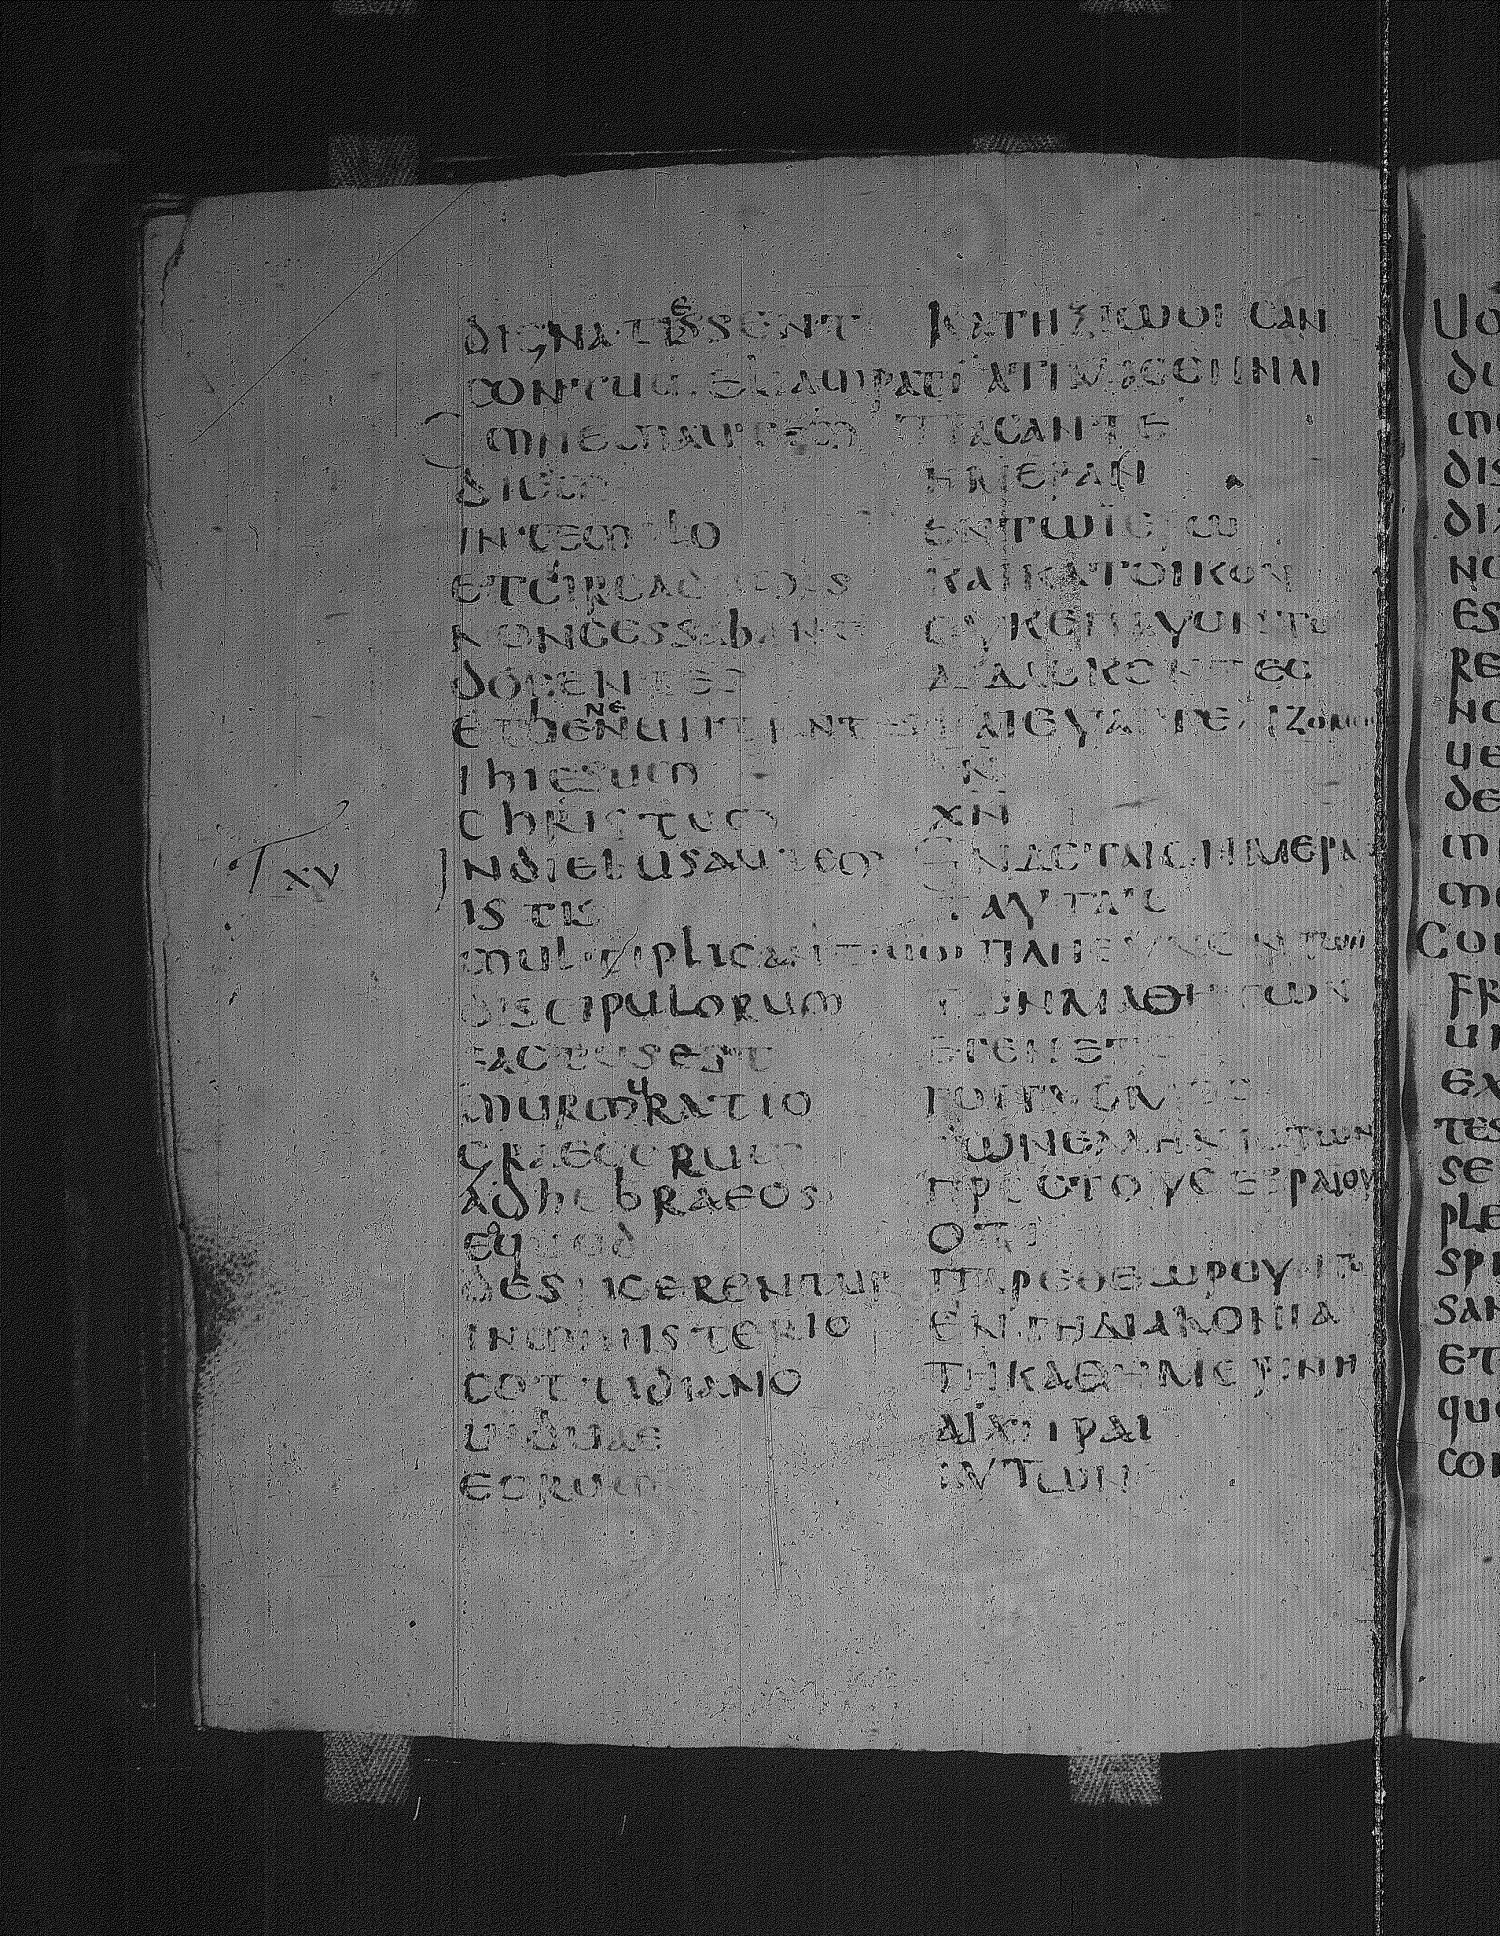 DIGNATI ESSENT ΚΑΤΗΞΙΩΘΗϹΑΝ
CONTUMELIAM PATI ΑΤΙΜΑϹΘΗΝΑΙ
OMNEM AUTEM ΠΑϹΑΝ ΤΕ
DIEM ΗΜΕΡΑΝ
IN TEMPLO ΕΝ ΤΩ ΙΕΡΩ
ET CIRCA DOMOS ΚΑΙ ΚΑΤ ΟΙΚΟΝ
NON CESSABANT ΟΥΚ ΕΠΑΥΟΝΤΟ
DOCENTES ΔΙΔΑϹΚΟΝΤΕϹ
ET BENE NUNTIANTES ΚΑΙ ΕΥΑΓΓΕΛΙΖΟΜΕΝΟΙ
IHESUM ΙΝ
CHRISTUM ΧΝ
T XV
IN DIEBUS AUTEM ΕΝ ΔΕ ΤΑΙϹ ΗΜΕΡΑΙϹ
ISTIS ΤΑΥΤΑΙϹ
MULTIPLICANTIUM ΠΛΗΘΥΝΟΝΤΩΝ
DISCIPULORUM ΤΩΝ ΜΑΘΗΤΩΝ
FACTUS EST ΕΓΕΝΕΤΟ
MURMURATIO ΓΟΓΓΥϹΜΟϹ
GRAECORUM ΤΩΝ ΕΛΛΗΝΙϹΤΩΝ
AD HEBRAEOS ΠΡΟϹ ΤΟΥϹ ΕΒΡΑΙΟΥϹ
EO QUOD ΟΤΙ
DESPICERENTUR ΠΑΡΕΘΕΩΡΟΥΝΤΟ
IN MINISTERIO ΕΝ ΤΗ ΔΙΑΚΟΝΙΑ
COTTIDIANO ΤΗ ΚΑΘΗΜΕΡΙΝΗ
UIDUAE ΑΙ ΧΗΡΑΙ
EORUM ΑΥΤΩΝ